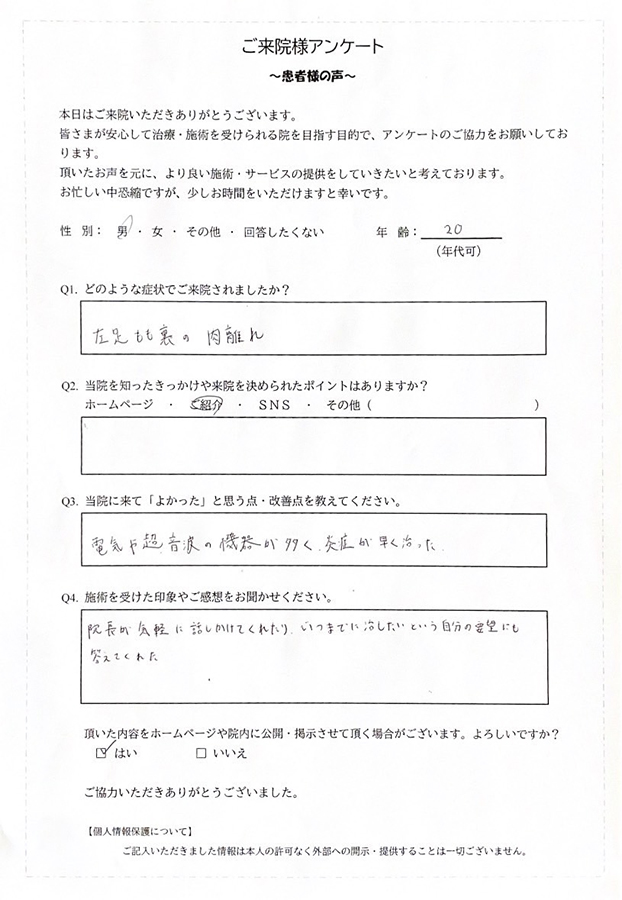 ご来院様アンケート
～患者様の声～
本日はご来院いただきありがとうございます。
皆さまが安心して治療・施術を受けられる院を目指す目的で、アンケートのご協力をお願いしてお
ります。
頂いたお声を元に、より良い施術・サービスの提供をしていきたいと考えております。
お忙しい中恐縮ですが、少しお時間をいただけますと幸いです。
性 別： 男 ・ 女 ・ その他 ・ 回答したくない 年 齢： 20
（年代可）
Q1. どのような症状でご来院されましたか？
左足もも裏の 肉離れ
Q2. 当院を知ったきっかけや来院を決められたポイントはありますか？
ホームページ ・ ご紹介 ・ SNS ・ その他（ ）
Q3. 当院に来て「よかった」と思う点・改善点を教えてください。
電気や超音波の機器が多く、炎症が早く治った.
Q4. 施術を受けた印象やご感想をお聞かせください。
院長が気軽に話しかけてくれたり、いつまでに治したいという自分の要望にも
答えてくれた
頂いた内容をホームページや院内に公開・掲示させて頂く場合がございます。よろしいですか？
☑ はい □ いいえ
ご協力いただきありがとうございました。
【個人情報保護について】
ご記入いただきました情報は本人の許可なく外部への開示・提供することは一切ございません。